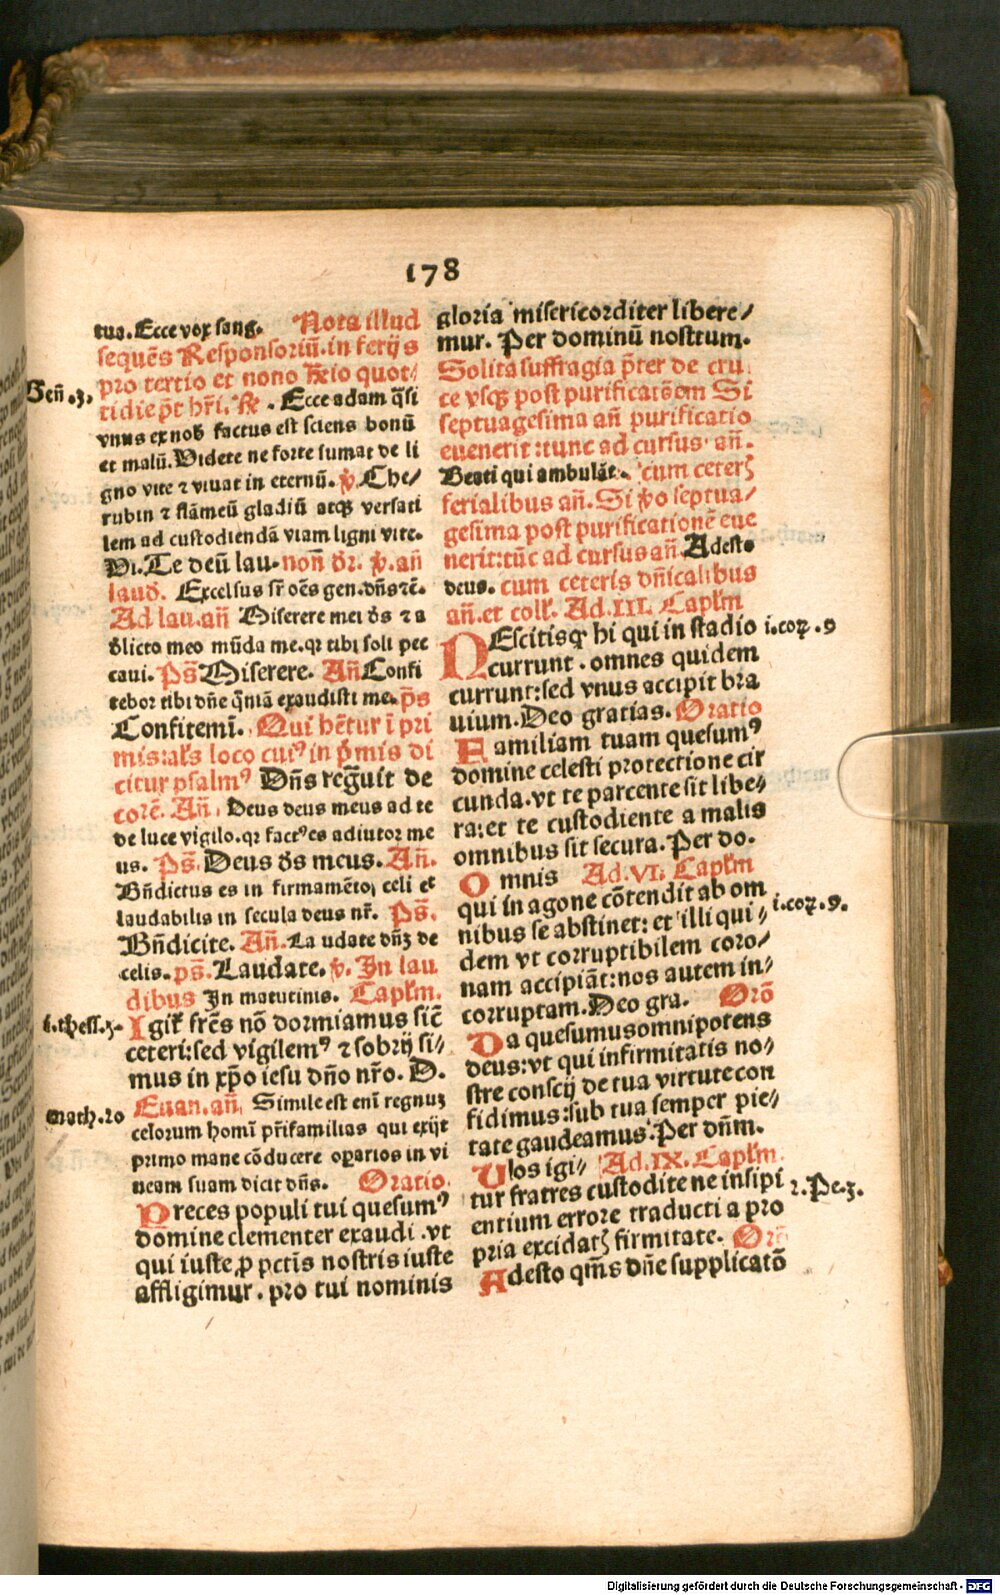 178
tua. Ecce vox sang. Nota illud
sequēs Responsoriū. in ferijs
pro tertio et nono
tidie
Ecce adam q̄si
Gen̄ .3.
vnus ex nob factus est sciens bonū
et malū. Videte ne forte sumat de li
gno vite ⁊ viuat in eternū. ꝟ. Che/
rubin ⁊ flāmeū gladiū atqꝫ versati
lem ad custodiendā viam ligni vite.
Te deū lau. non̄ ꝟ. an̄
laud̄. Excelsus sr̄ oēs gen. dn̄s ⁊c̄.
Ad lau. an̄ Miserere mei ds̄ ⁊ a
dlicto meo mūda me. qꝛ tibi soli pec
caui. Ps̄ Miserere. An̄ Confi
tebor tibi dn̄e qm̄iā exaudisti me. ps̄
Confitemī. Qui hētur ī pri
mis: al's loco cuiꝰ in p̄mis di
citur psalmꝰ Dn̄s reḡuit de
corē. An̄. Deus deus meus ad te
de luce vigilo. qꝛ factꝰ es adiutor me
us. Ps̄. Deus ds̄ meus. An̄.
Bn̄dictus es in firmamēto, celi et
laudabilis in secula deus nr̄. Ps̄.
Bn̄dicite. An̄. Laudate dn̄ꝫ de
celis. ps̄. Laudate. ꝟ. In lau
dibus In matutinis. Capl'm.
i. thess. 5. Igit' fr̄es nō dormiamus sic̄
ceteri: sed vigilemꝰ ⁊ sobrij si/
mus in xp̄o iesu dn̄o nr̄o. D.
math. 20 Euan. an̄. Simile est enī regnuꝫ
celorum homī pr̄ifamilias qui exijt
primo mane cōducere oꝑarios in vi
neam suam dicit dn̄s. Oratio.
Preces populi tui quesumꝰ
domine clementer exaudi . vt
qui iuste ꝓ pctīs nostris iuste
affligimur. pro tui nominis
gloria misericorditer libere/
mur. Per dominū nostrum.
Solita suffragia p̄ter de cru
ce vsqꝫ post purificatōem Si
septuagesima an̄ purificatio
euenerit: tunc ad cursus an̄.
Beati qui ambulāt. cum ceterꝫ
ferialibus an̄. Si ꝟo septua/
gesima post purificationē eue
nerit: tūc ad cursus an̄. Adesto
deus. cum ceteris dn̄icalibus
an̄. et coll'. Ad. III. Capl'm
NEscitis qꝛ hi qui in stadio i. coꝝ. 9
currunt . omnes quidem
currunt: sed vnus accipit bra
uium. Deo gratias. Oratio
Familiam tuam quesumꝰ
domine celesti protectione cir
cunda. vt te parcente sit libe/
ra: et te custodiente a malis
omnibus sit secura. Per do.
Omnis Ad. VI. Capl'm
qui in agone cōtendit ab om i. coꝝ. 9.
nibus se abstinet: et illi qui/
dem vt corruptibilem coro/
nam accipiāt: nos autem in/
corruptam. Deo gra. Orō
Da quesumus omnipotens
deus: vt qui infirmitatis no/
stre conscij de tua virtute con
fidimus: sub tua semper pie/
tate gaudeamus. Per dn̄m.
Vos igi/ Ad. IX. Capl'm.
tur fratres custodite ne insipi 2. Pe. 3.
entium errore traducti a pro
pria excidatꝫ firmitate. Orō
Adesto qm̄s dn̄e supplicatō
Digitalisierung gefördert durch die Deutsche Forschungsgemeinschaft - DFG